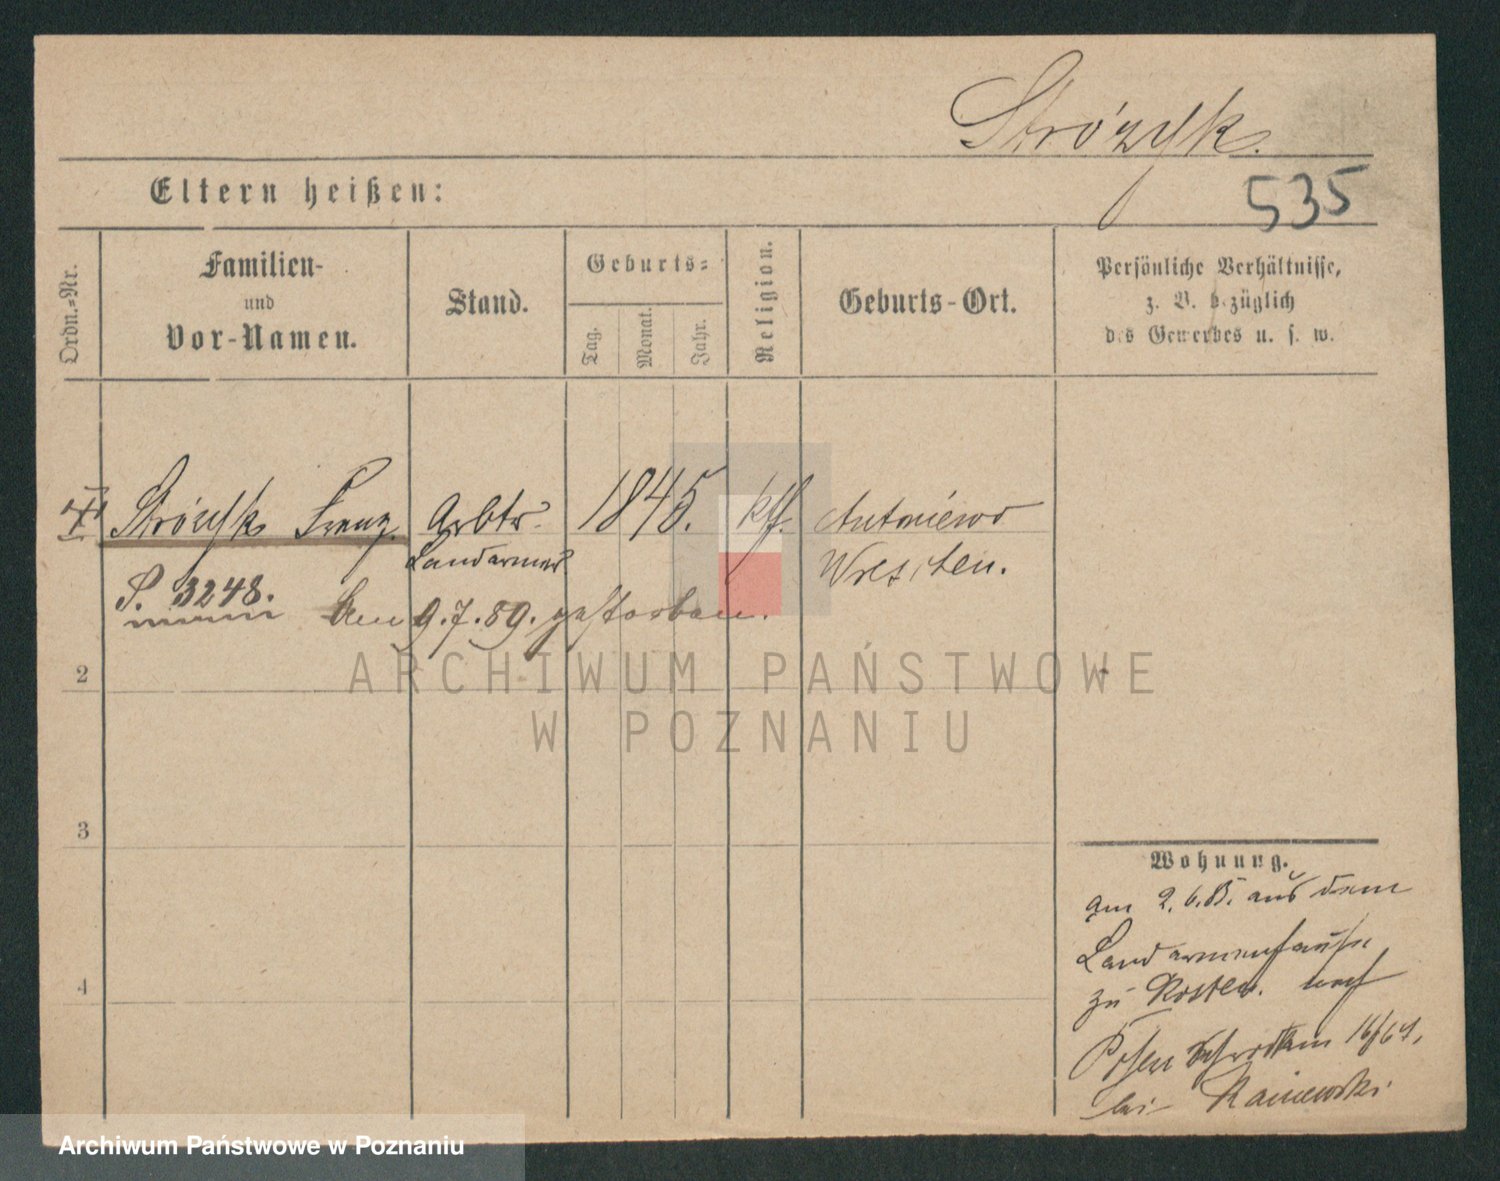 Stróżyk.
535
Eltern heißen:
Ordn.-Nr.
Familien-
und
Vor-Namen.
Stand.
Geburts-
Tag.
Monat.
Jahr.
Religion.
Geburts-Ort.
Persönliche Verhältnisse,
z. B. bezüglich
des Gewerbes u. s. w.
Stróżyk Franz. Arbtr. 1845. kth. Antoniewo
Landarmer Wreschen.
P. 3248. Am 9.7.89. gestorben.
2
3
4
Wohnung.
am 2.6.85. aus dem
Landarmenhause
zu Kosten. nach
Posen Schrodkam 16/64,
bei
ARCHIWUM PAŃSTWOWE
W POZNANIU
Archiwum Państwowe w Poznaniu